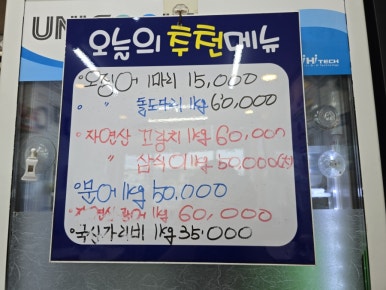 UNI
Hi HITECH
오늘의 추천메뉴
오징어 1마리 15,000
" 돌도다리 1kg 60,000
자연산 1kg 60,000
" 삼식이 1kg 50,000
문어 1kg 50,000
1kg 60,000
국산가리비 1kg 35,000